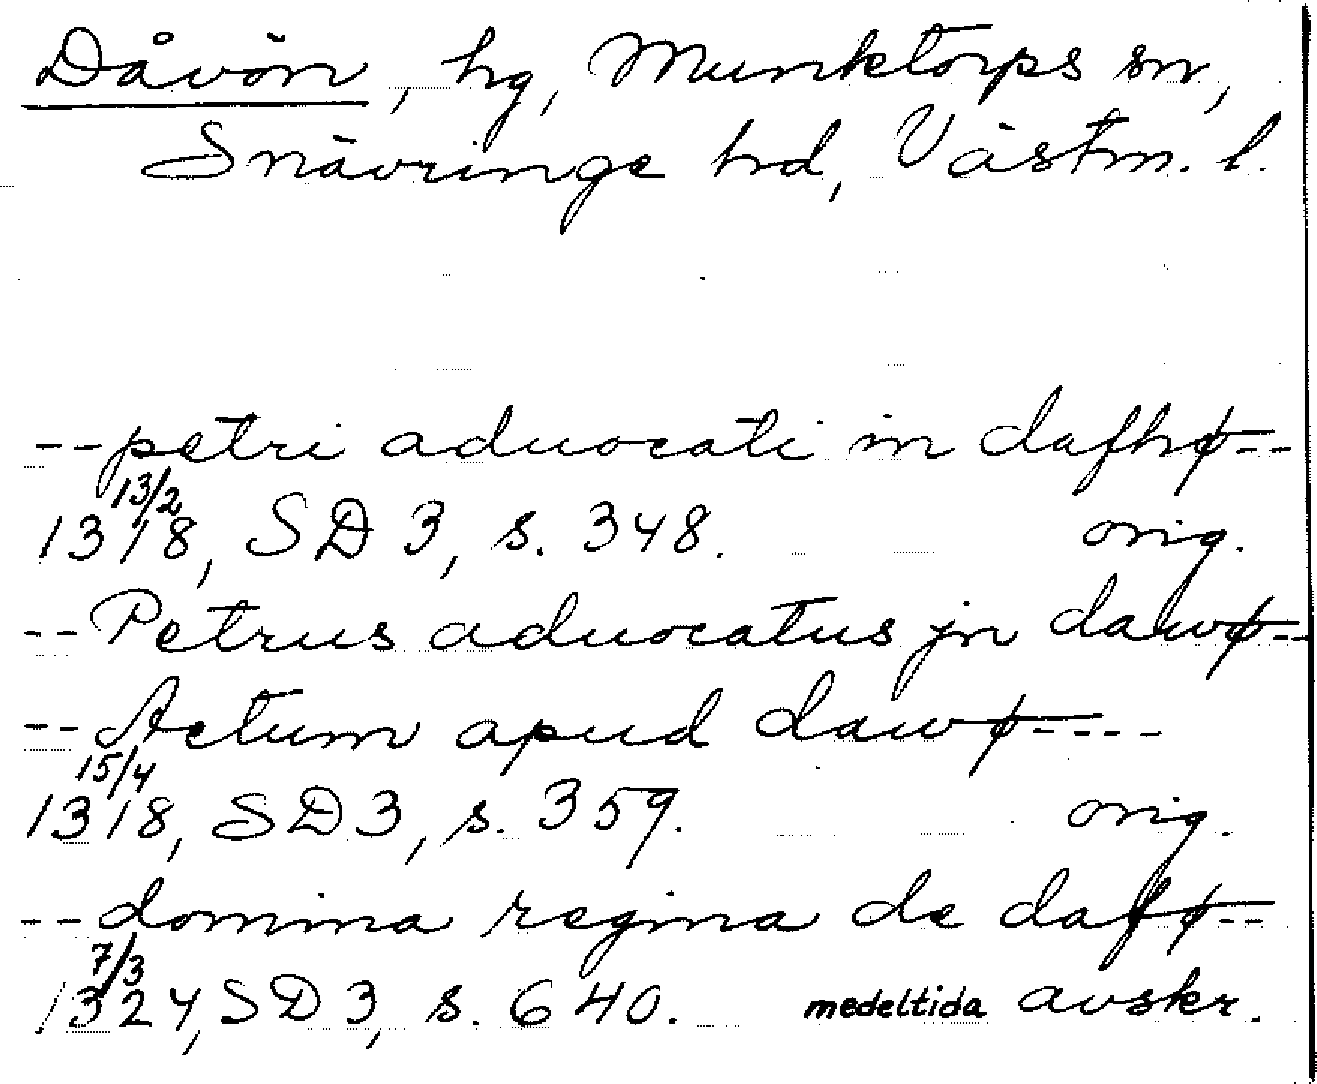 Dåvön, hg, Munktorps sn,
Snävringe hd, Västm. l.
--petri aduocati in dafhø--
13/2
1318, SD 3, s. 348. orig.
--Petrus aduocatus jn dawø--
--Actum apud dawø----
15/4
1318, SD 3, s. 359. orig.
--domina regina de dafø--
7/3
1324, SD 3, s. 640. medeltida avskr.